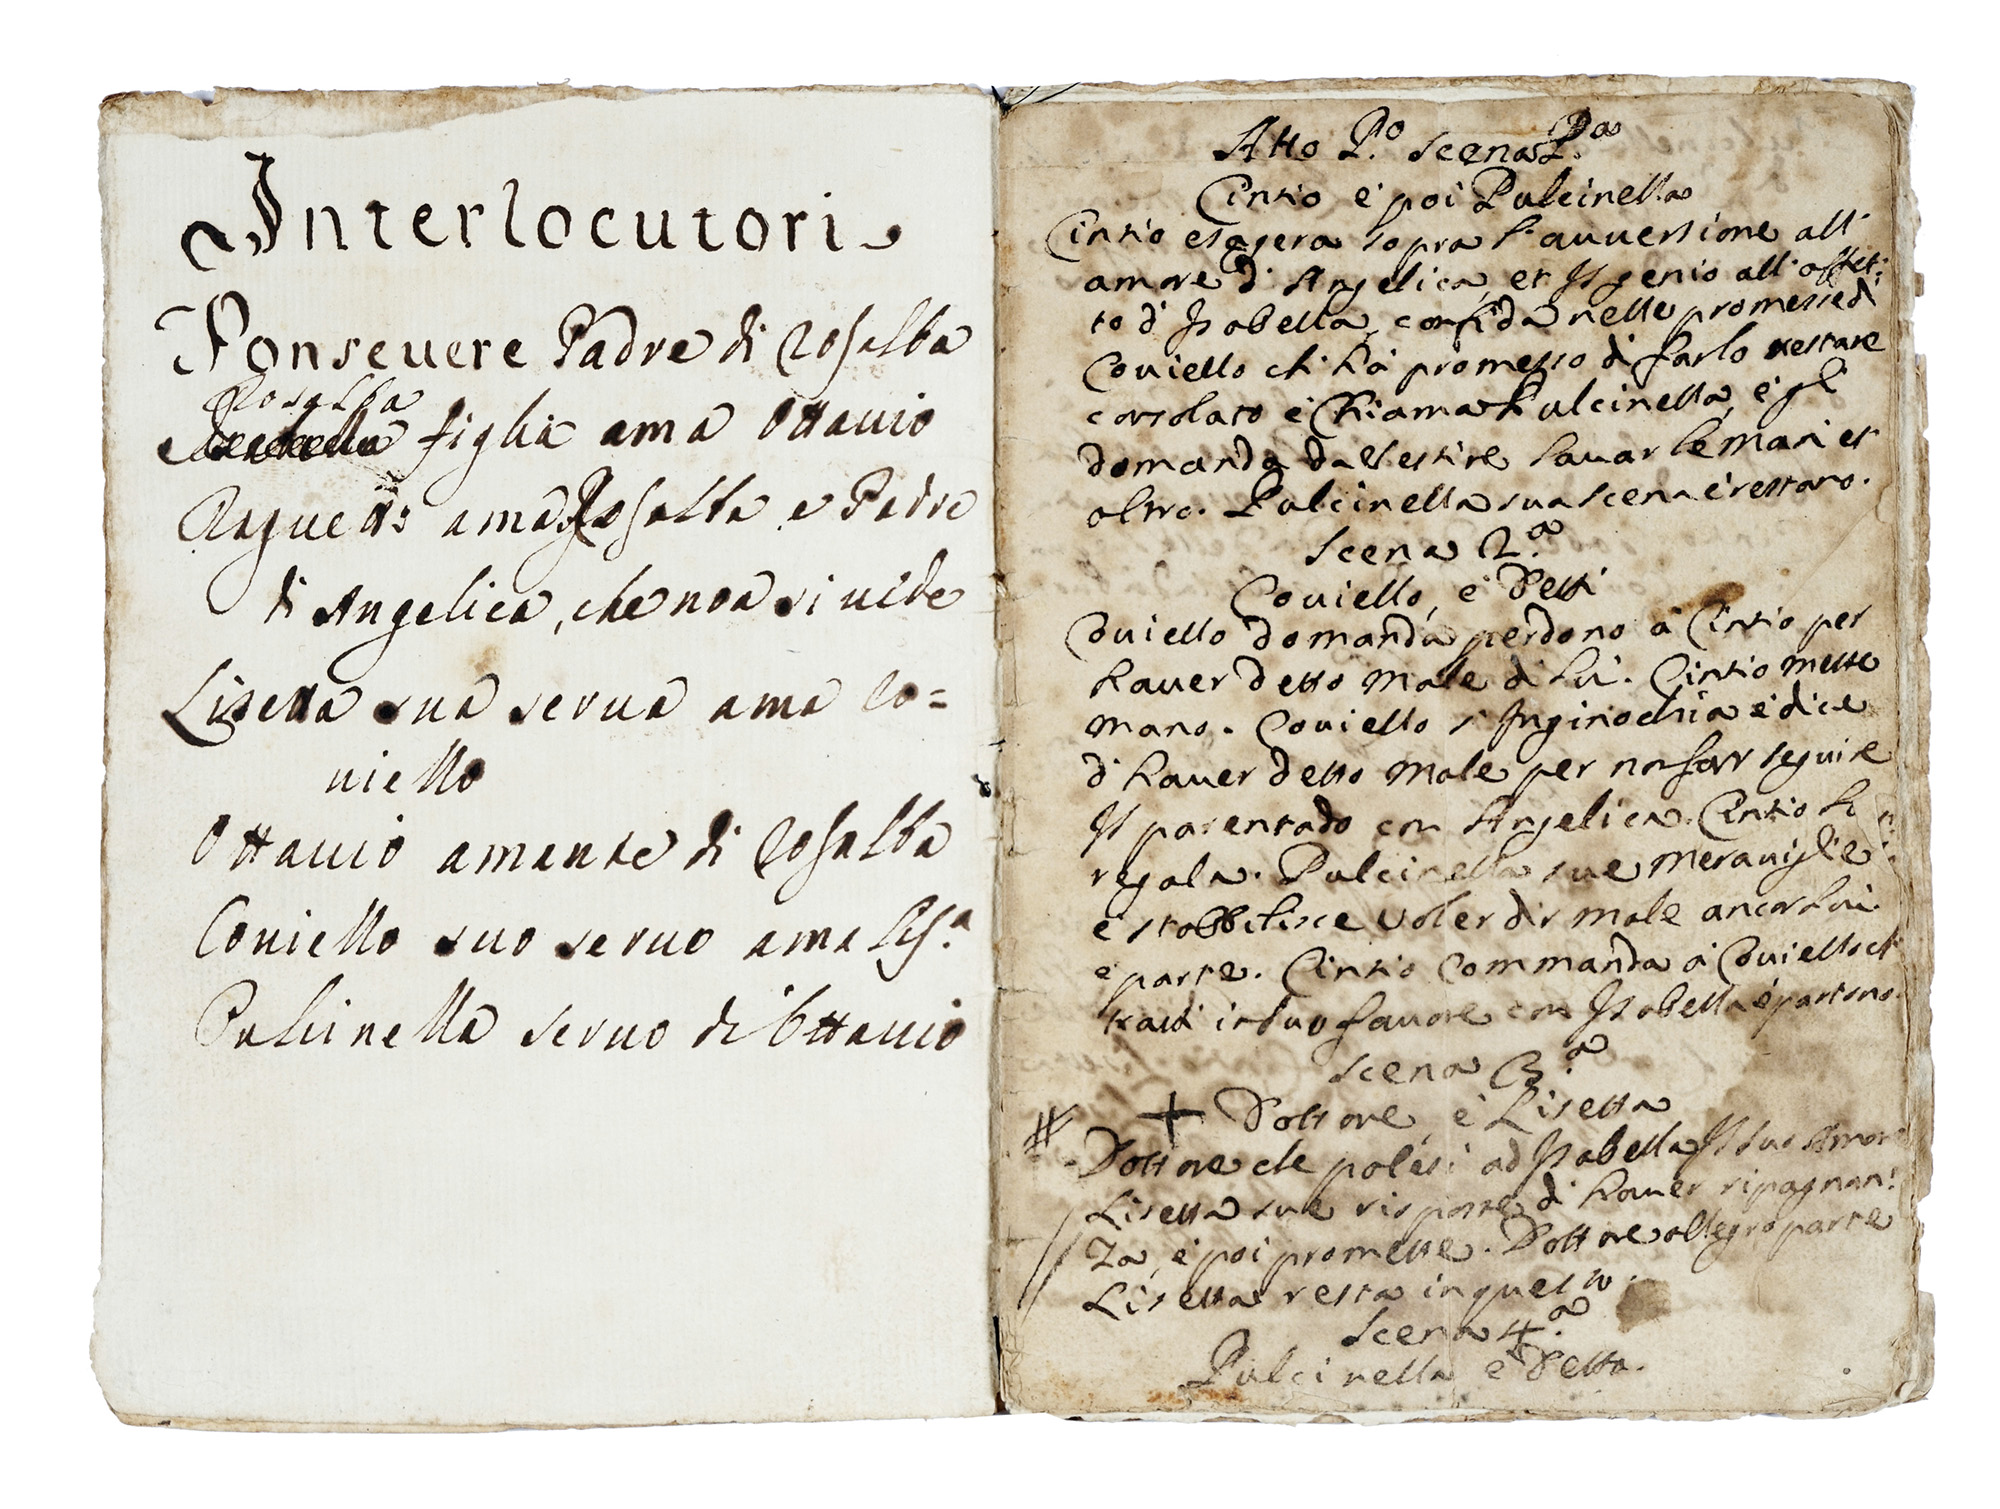 Interlocutori
Ponseuere Padre di Rosalba
Rosalba
figlia ama Ottauio
ama Rosalba e Padre
di Angelica, che non si uide
Lisetta sua serua ama Co=
uiello
Ottauio amante di Rosalba
Couiello suo seruo ama Lis.a
Pulcinella seruo di Ottauio
Atto P.o scena P.a
Cintio e poi Pulcinella
Cintio esagera sopra l'auuersione all'
amore d' Angelica, et Il genio all' affet:
to d' Isabella, confida nelle promesse di
Couiello ch' hà promesso di farlo restare
consolato è chiama Pulcinella, è gli
domanda da Vestire lauar le mani et
altro. Pulcinella sua scena è restano.
Scena 2.a
Couiello, è Detti
Couiello domanda perdono à Cintio per
hauer detto male di lui. Cintio mette
mano. Couiello s' Inginochia è dice
d' hauer detto male per non far seguire
Il parentado con Angelica. Cintio li
regala. Pulcinella sue merauiglie
è stabbilisce uoler dir male ancor lui
è parte. Cintio commanda à Couiello ch'
in suo fauore con Isabella è partono.
Scena 3.a
+ Dottore, è Lisetta
# Dottore che palesi ad Isabella Il suo Amore
Lisetta sue risposte d' hauer ripagnan:
za, è poi promette. Dottore allegro parte
Lisetta resta in questo.
Scena 4.a
Pulcinella e Detta.